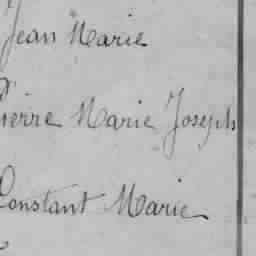 Jean Marie
Pierre Marie Joseph
Constant Marie